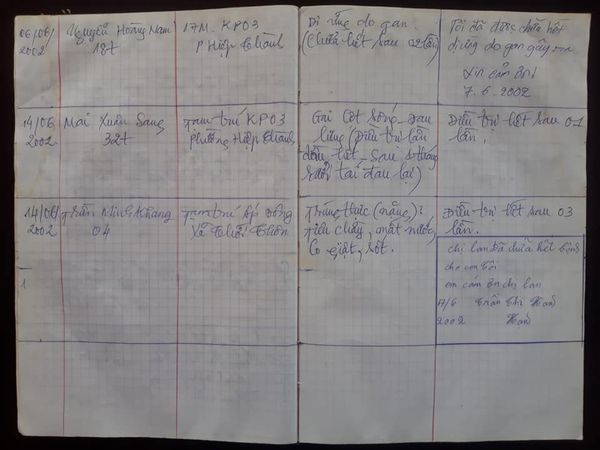 06/06/
2002
Nguyễn Hoàng Nam
18t
17M. KP03
P Hiệp Thành
Dị ứng do gan
(Chữa hết sau 02 lần)
Tôi đã được chữa hết
dị ứng do gan gây ra
Xin cảm ơn!
7.6.2002
14/06
2002
Mai Xuân Sang
32t
Tạm trú KP03
phường Hiệp Thành
Gai cột sống - đau
lưng (Điều trị lần
đầu hết - sau 1 tháng
rưỡi tái đau lại)
Điều trị hết sau 01
lần.
14/06/
2002
Trần Minh Khang
04
Tạm trú ấp
Xã
Trúng thực (nắng)?
Tiêu chảy, mất nước,
Co giật, sốt.
Điều trị hết sau 03
lần.
chị lan Đã chữa hết bệnh
cho con tôi
em cám ơn chị lan
17/6 Trần Thị Hoan
2002 Hoan
1